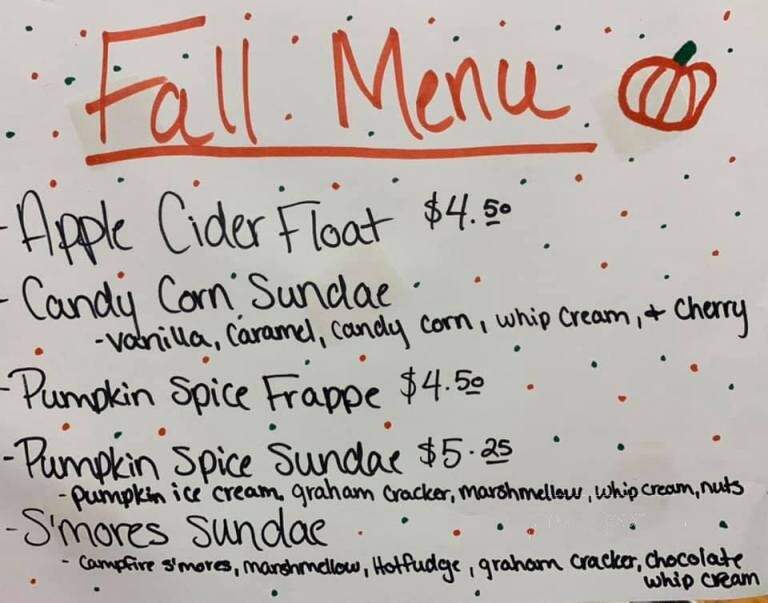 Fall Menu
- Apple Cider Float $4.50
- Candy Corn Sundae
- vanilla, caramel, candy corn, whip cream, + cherry
- Pumpkin Spice Frappe $4.50
- Pumpkin Spice Sundae $5.25
- pumpkin ice cream, graham cracker, marshmellow, whip cream, nuts
- S'mores Sundae
- Campfire s'mores, marshmellow, Hotfudge, graham cracker, chocolate
whip cream